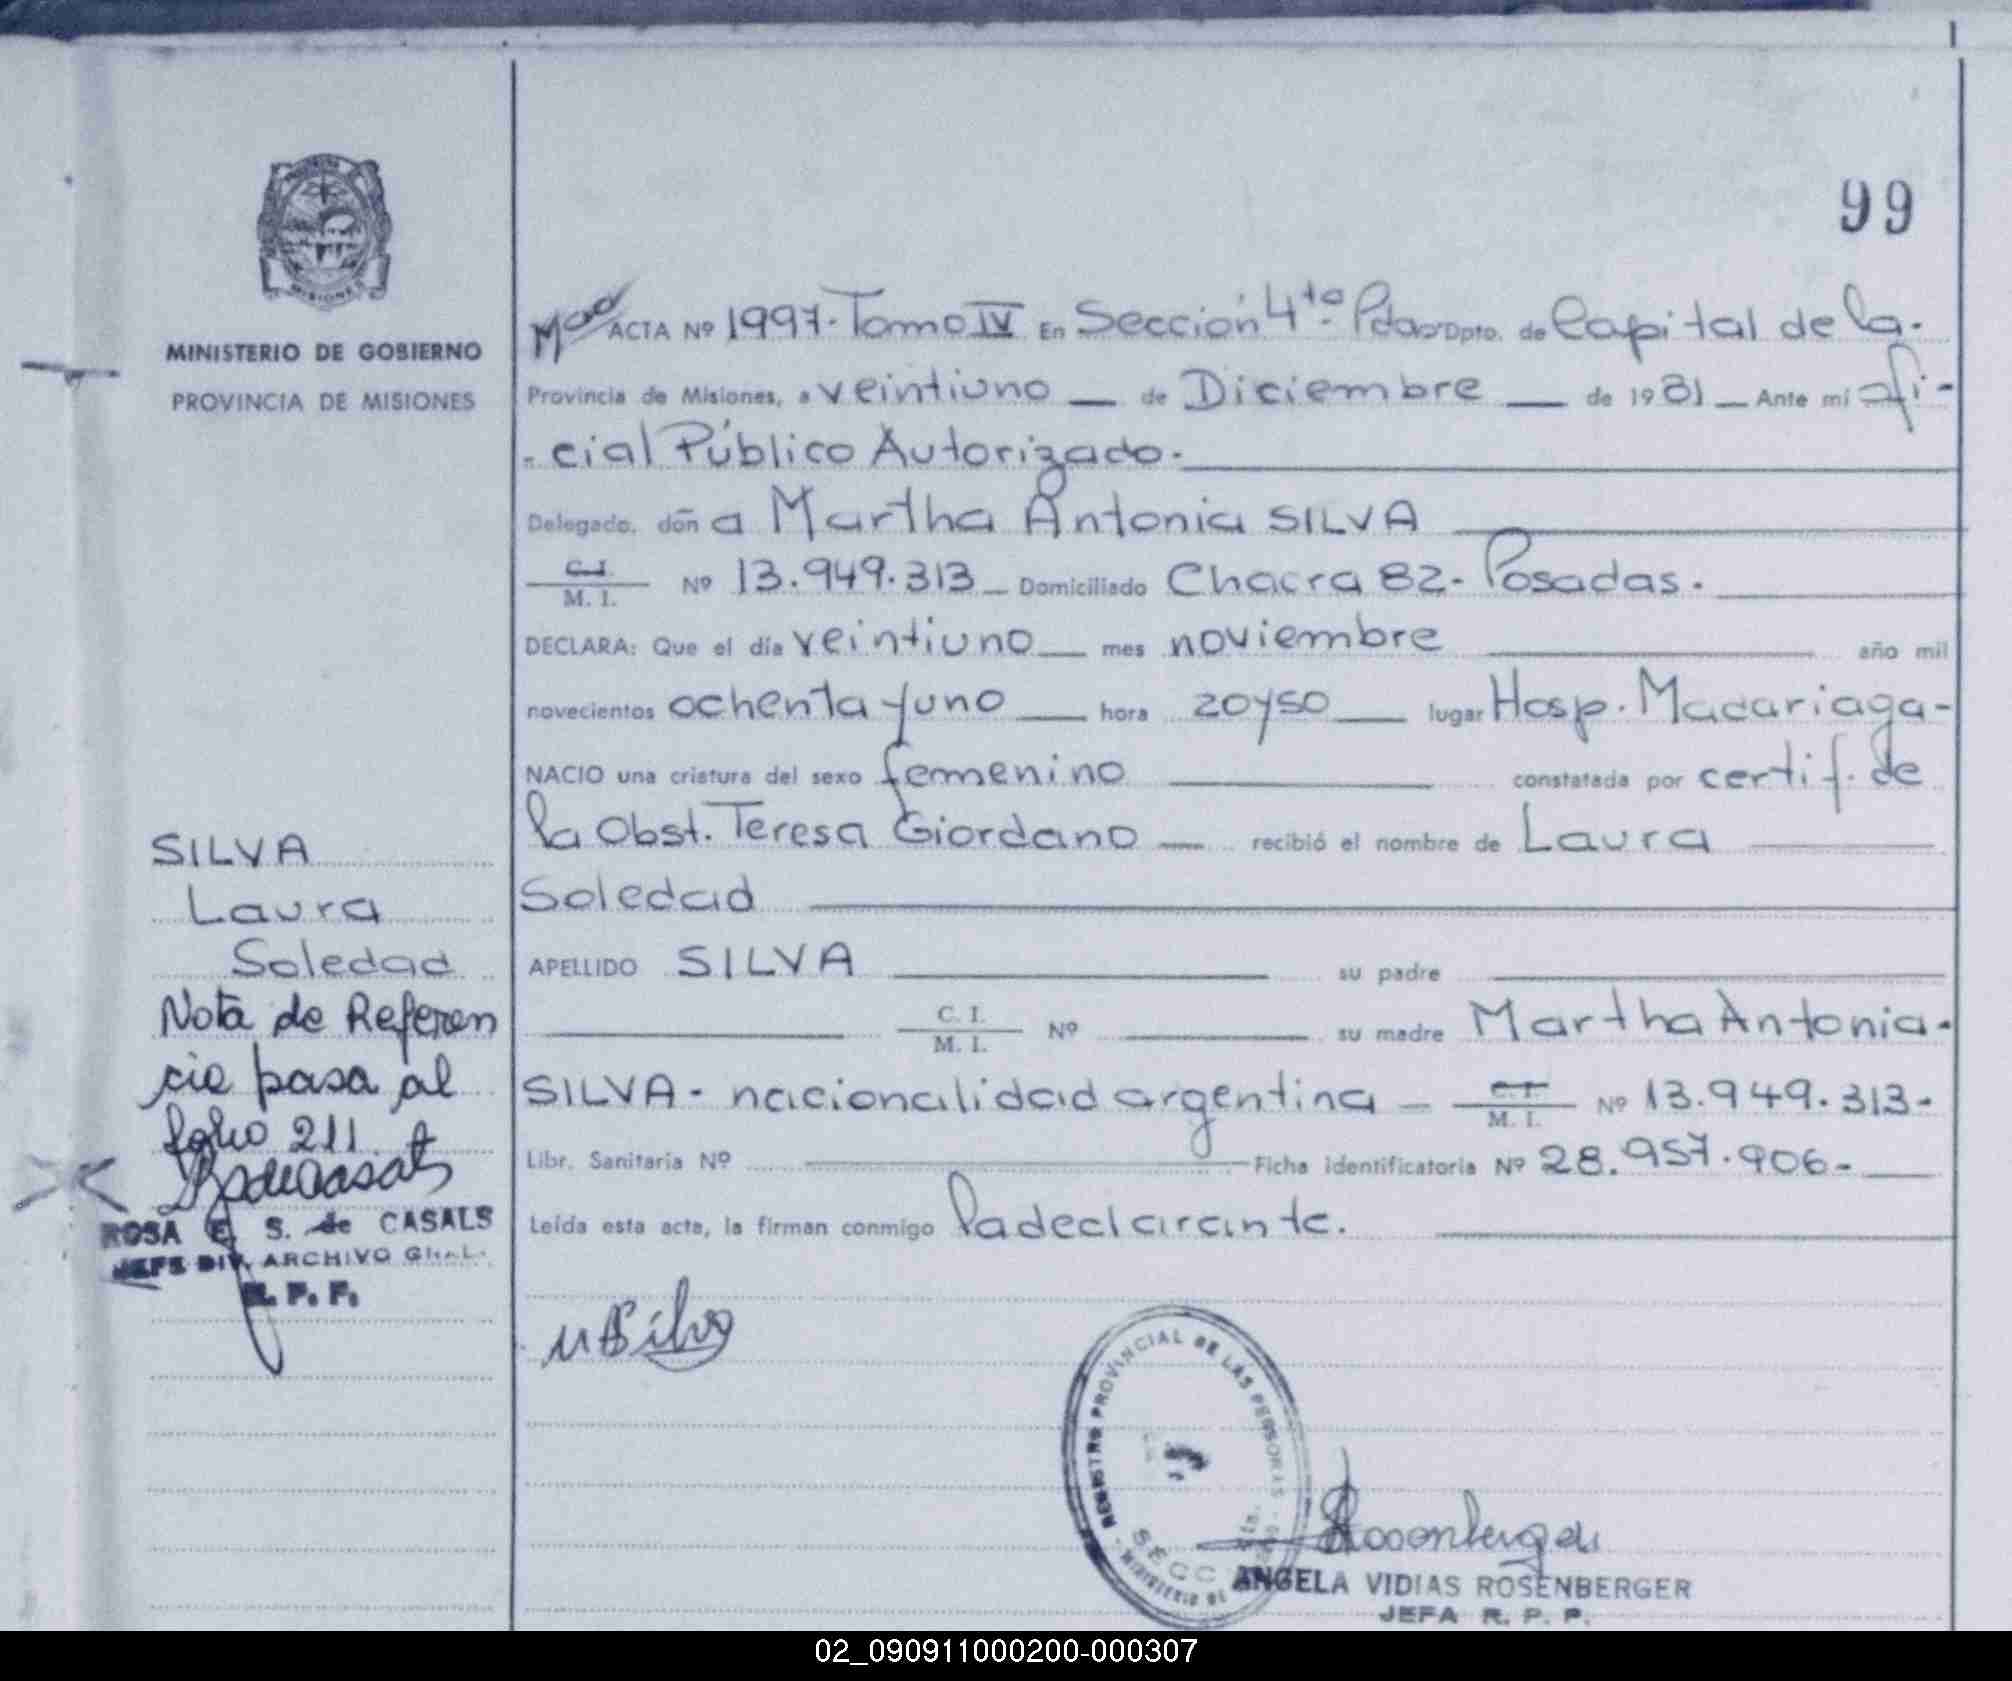 99
MINISTERIO DE GOBIERNO
PROVINCIA DE MISIONES
ACTA Nº 1997. Tomo IV En Sección 4ta. Pdas Dpto. de Capital de la.
Provincia de Misiones, a veintiuno — de Diciembre — de 1981 — Ante mi Ofi-
- cial Público Autorizado.
Delegado, don a Martha Antonia SILVA
C. I.
M. I. Nº 13.949.313 — Domiciliado Chacra 82 - Posadas.
DECLARA: Que el día veintiuno — mes noviembre año mil
novecientos ochenta y uno — hora 20y50 — lugar Hosp. Madariaga-
NACIO una criatura del sexo femenino constatada por certif. de
la Obst. Teresa Giordano — recibió el nombre de Laura
Soledad
APELLIDO SILVA su padre
C. I.
M. I. Nº su madre Martha Antonia-
SILVA - nacionalidad argentina — C. I.
M. I. Nº 13.949.313-
Libr. Sanitaria Nº Ficha identificatoria Nº 28.957.906-
Leída esta acta, la firman conmigo la declarante.
SILVA
Laura
Soledad
Nota de Referen
cia pasa al
folio 211.
ROSA E. S. de CASALS
JEFE DIV. ARCHIVO GRAL.
R. P. P.
MASilva
REGISTRO PROVINCIAL DE LAS PERSONAS
SECC
MINISTERIO DE
ANGELA VIDIAS ROSENBERGER
JEFA R. P. P.
02_090911000200-000307